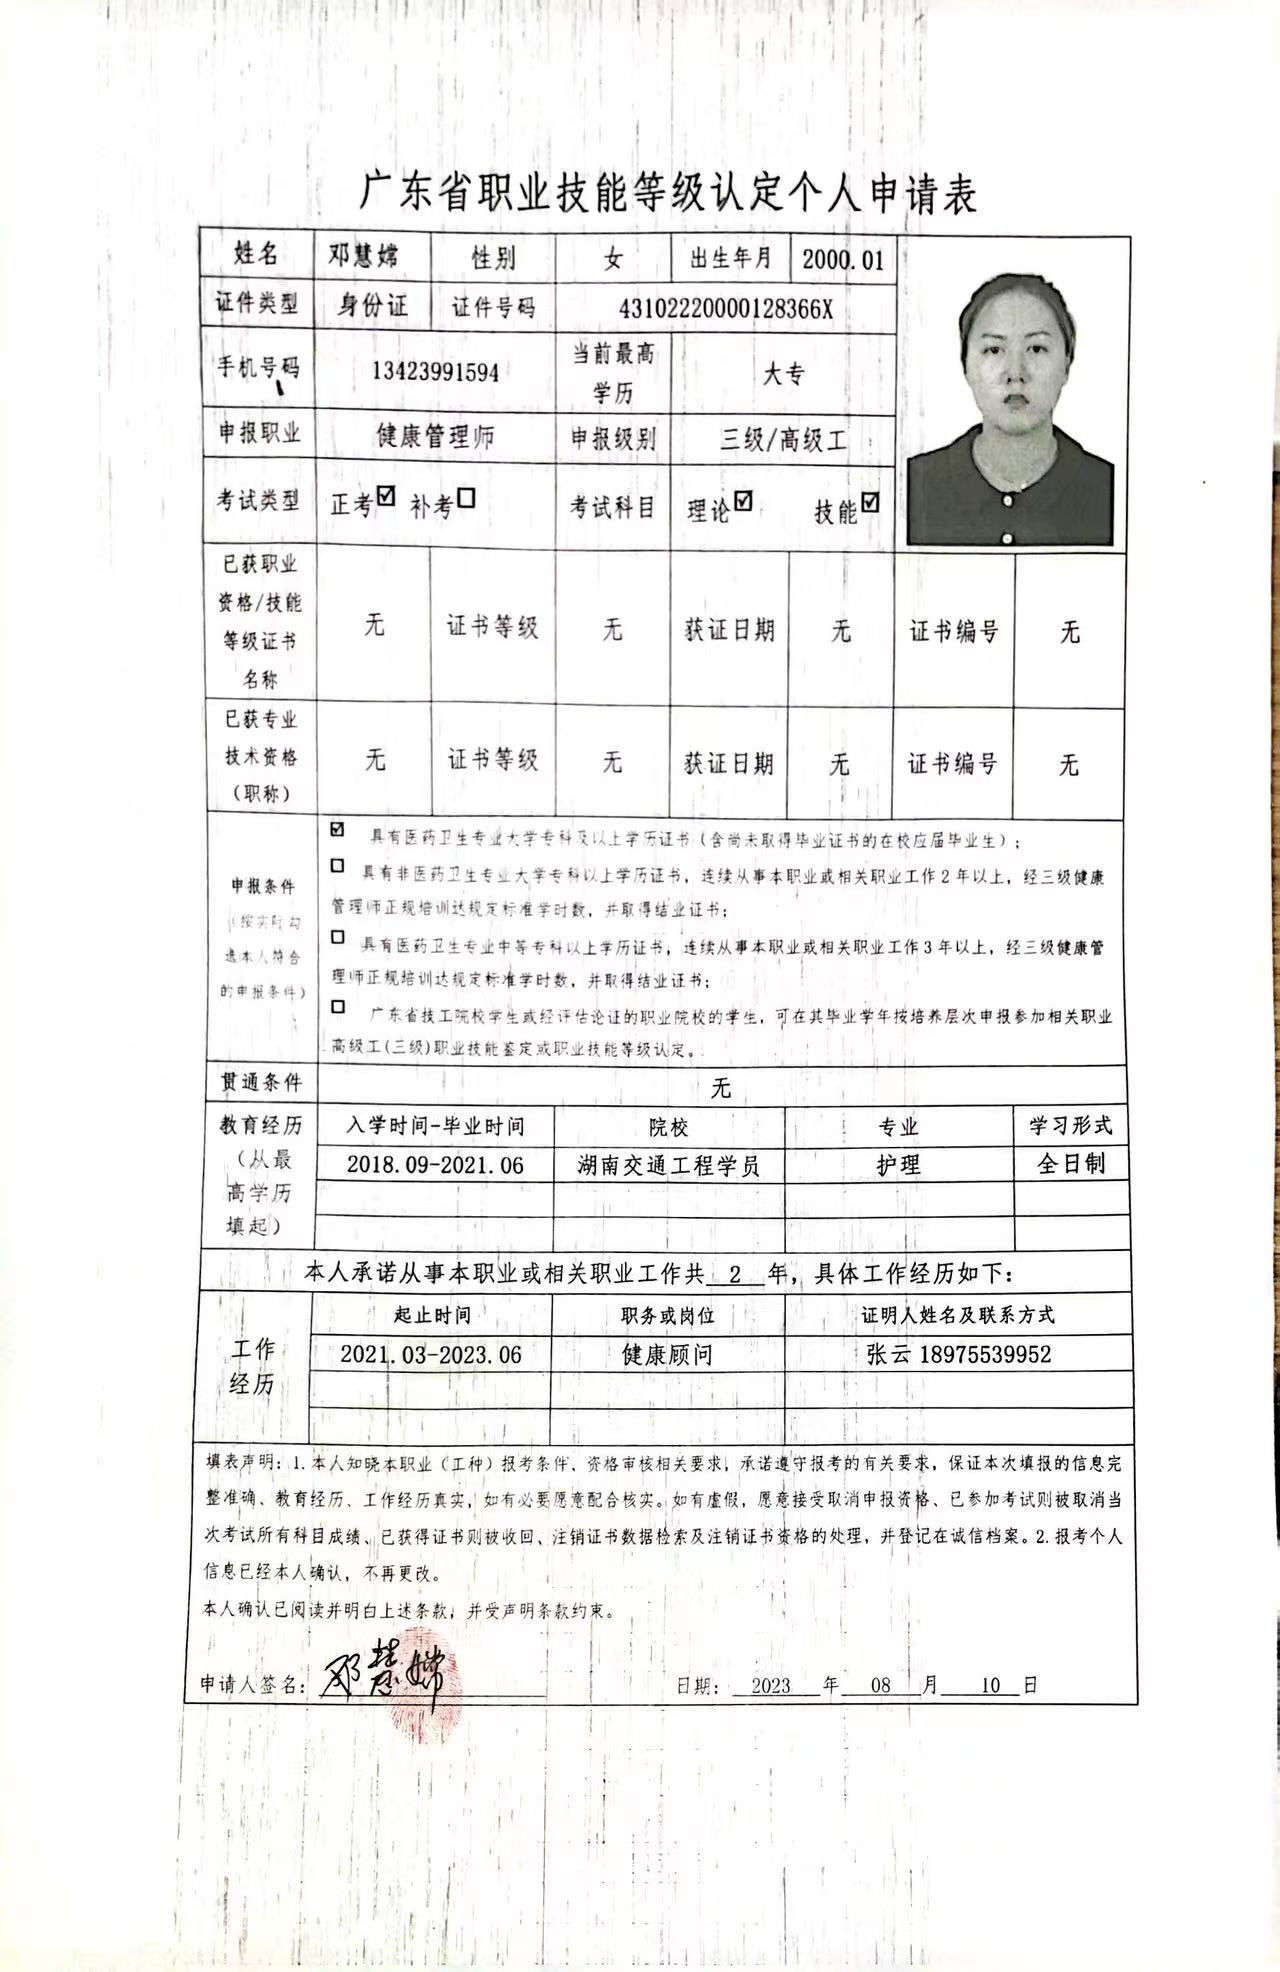 广东省职业技能等级认定个人申请表
姓名 邓慧嫦 性别 女 出生年月 2000.01
证件类型 身份证 证件号码 43102220000128366X
手机号码 13423991594 当前最高学历 大专
申报职业 健康管理师 申报级别 三级/高级工
考试类型 正考☑ 补考☐ 考试科目 理论☑ 技能☑
已获职业资格/技能等级证书名称 无 证书等级 无 获证日期 无 证书编号 无
已获专业技术资格（职称） 无 证书等级 无 获证日期 无 证书编号 无
申报条件（按实际勾选本人符合的申报条件）
☑ 具有医药卫生专业大学专科及以上学历证书（含尚未取得毕业证书的在校应届毕业生）；
☐ 具有非医药卫生专业大学专科以上学历证书，连续从事本职业或相关职业工作2年以上，经三级健康
管理师正规培训达规定标准学时数，并取得结业证书；
☐ 具有医药卫生专业中等专科以上学历证书，连续从事本职业或相关职业工作3年以上，经三级健康管
理师正规培训达规定标准学时数，并取得结业证书；
☐ 广东省技工院校学生或经评估论证的职业院校的学生，可在其毕业学年按培养层次申报参加相关职业
高级工(三级)职业技能鉴定或职业技能等级认定。
贯通条件 无
教育经历（从最高学历填起） 入学时间-毕业时间 院校 专业 学习形式
2018.09-2021.06 湖南交通工程学员 护理 全日制
本人承诺从事本职业或相关职业工作共 2 年，具体工作经历如下：
工作经历 起止时间 职务或岗位 证明人姓名及联系方式
2021.03-2023.06 健康顾问 张云 18975539952
填表声明：1.本人知晓本职业（工种）报考条件、资格审核相关要求，承诺遵守报考的有关要求，保证本次填报的信息完
整准确、教育经历、工作经历真实，如有必要愿意配合核实。如有虚假，愿意接受取消申报资格、已参加考试则被取消当
次考试所有科目成绩、已获得证书则被收回、注销证书数据检索及注销证书资格的处理，并登记在诚信档案。2.报考个人
信息已经本人确认，不再更改。
本人确认已阅读并明白上述条款，并受声明条款约束。
申请人签名： 邓慧嫦 日期： 2023 年 08 月 10 日